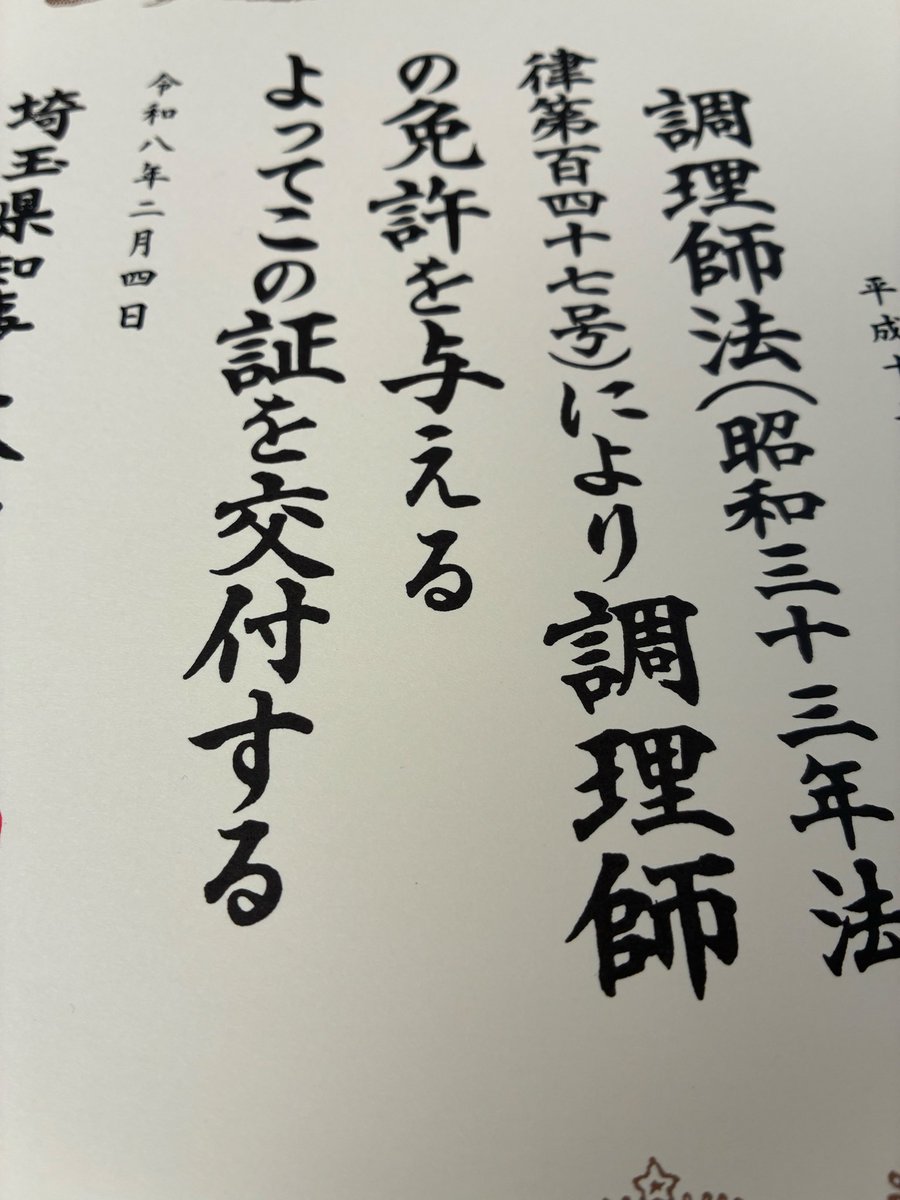 平成十
調理師法（昭和三十三年法
律第百四十七号）により調理師
の免許を与える
よってこの証を交付する
令和八年二月四日
埼玉県知事